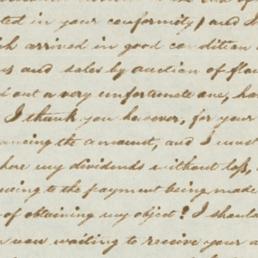 ted in your conformity) and I
ch arrived in good condition
us and sales by auction of flou
d out a very unfortunate one, ha
I thank you however, for your
ancing the amount, and I must
here my dividends without loss,
owing to the payment being made
of obtaining my object! I shoul
now waiting to receive your a